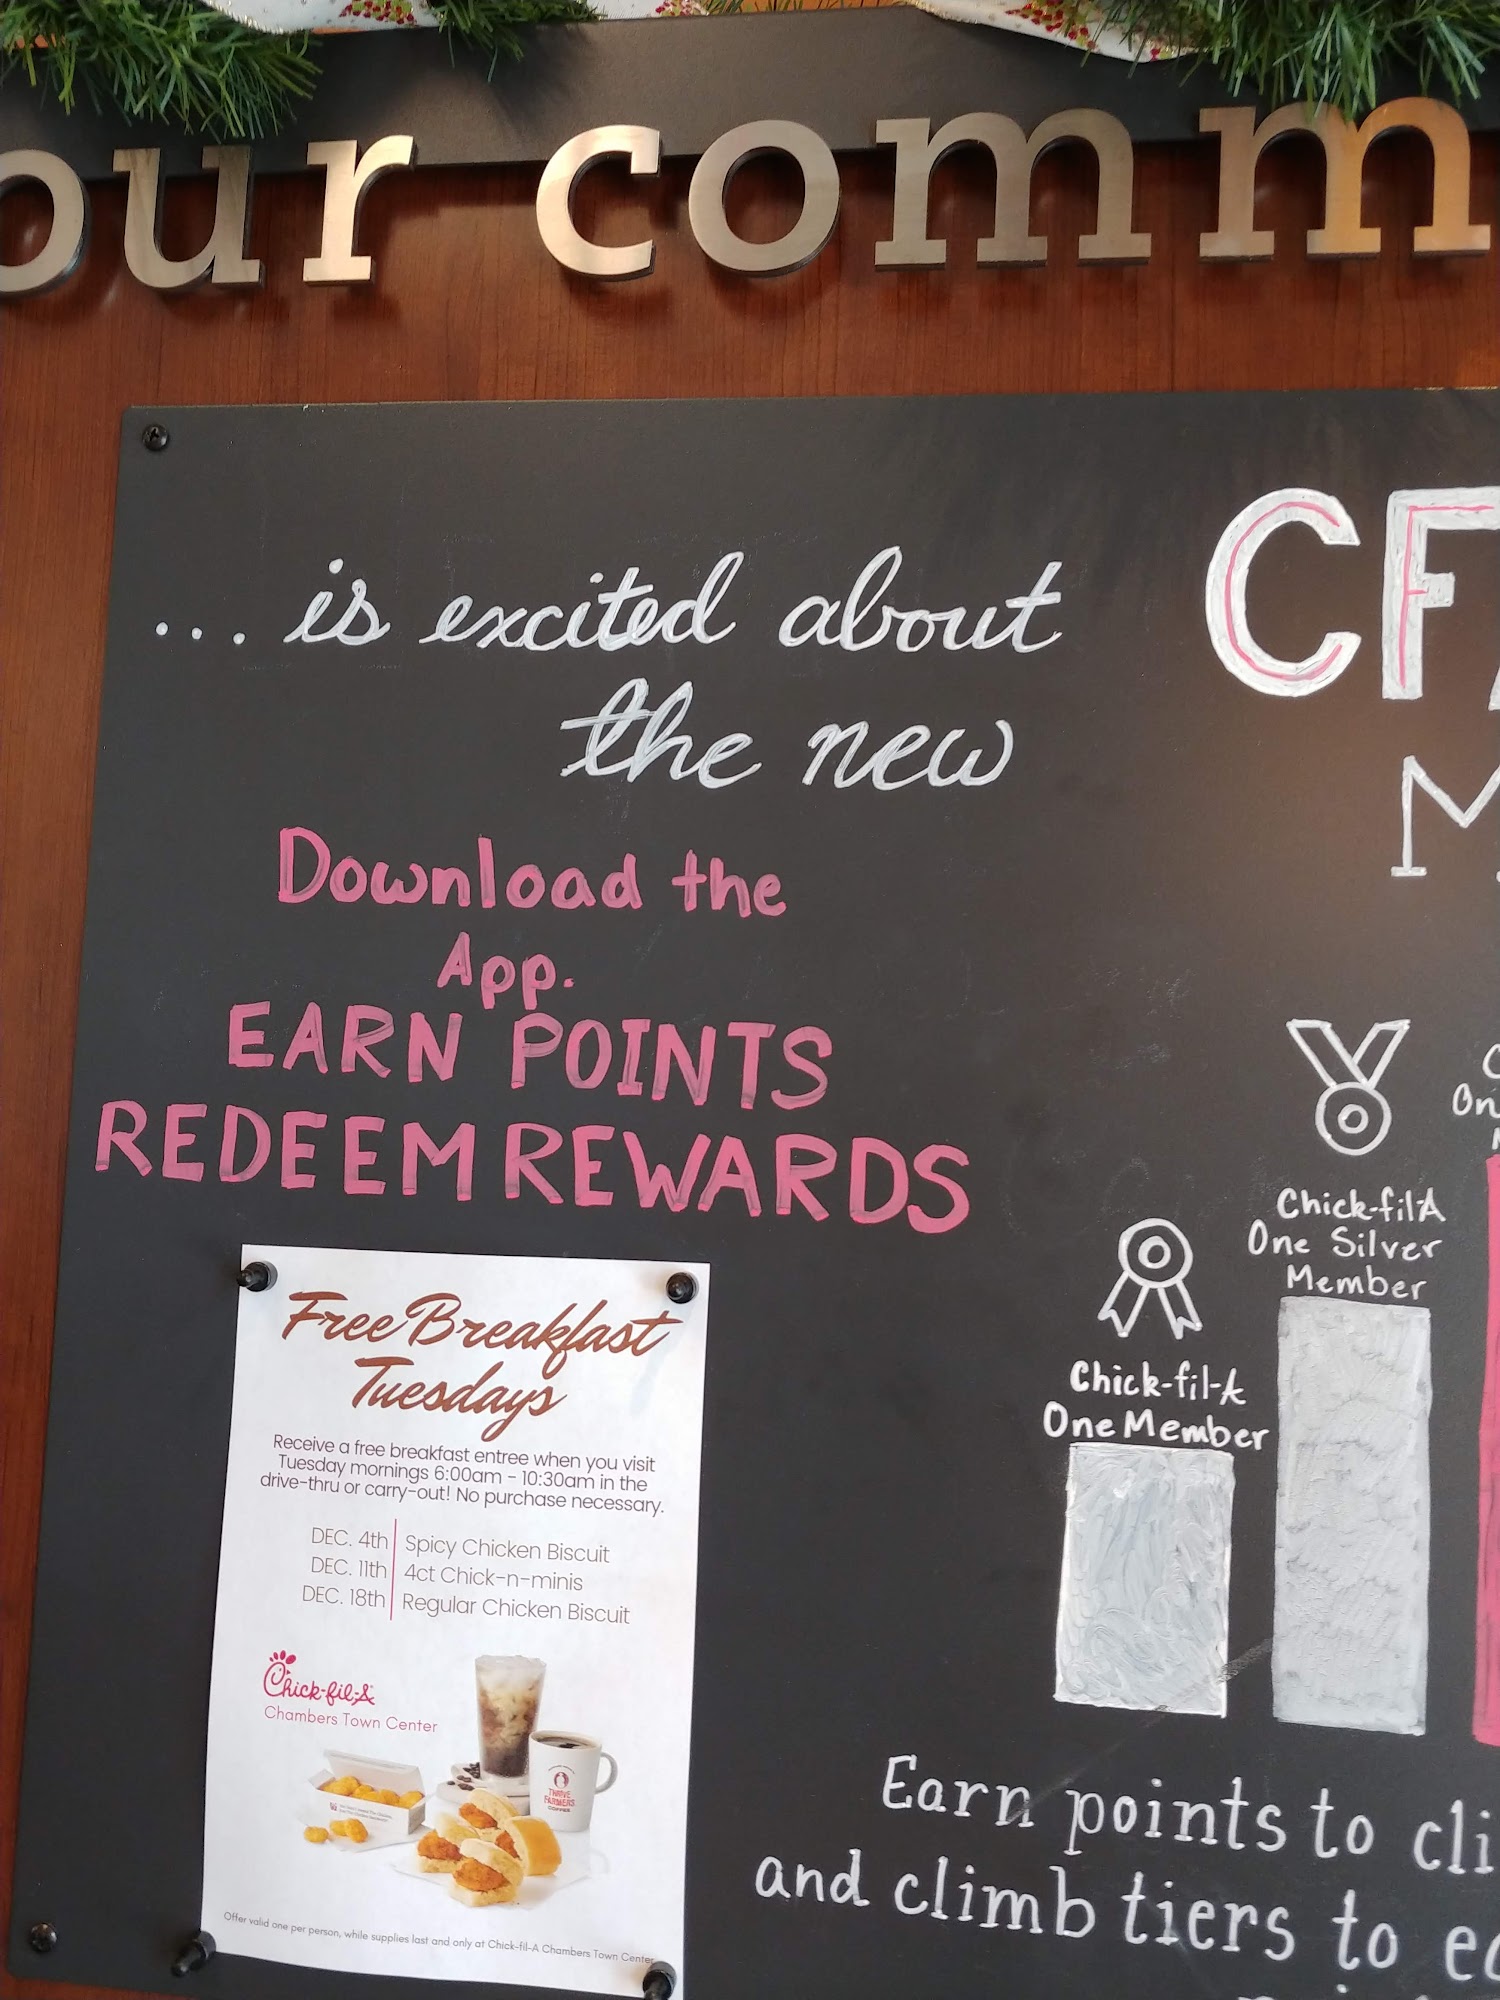 our comm
... is excited about
the new
CF
M
Download the
App.
EARN POINTS
REDEEM REWARDS
Chick-fil-A
One Silver
Member
Chick-fil-A
One Member
On
Free Breakfast
Tuesdays
Receive a free breakfast entree when you visit
Tuesday mornings 6:00am - 10:30am in the
drive-thru or carry-out! No purchase necessary.
DEC. 4th Spicy Chicken Biscuit
DEC. 11th 4ct Chick-n-minis
DEC. 18th Regular Chicken Biscuit
Chick-fil-A
Chambers Town Center
THRIVE
FARMERS
COFFEE
Offer valid one per person, while supplies last and only at Chick-fil-A Chambers Town Center
Earn points to cli
and climb tiers to